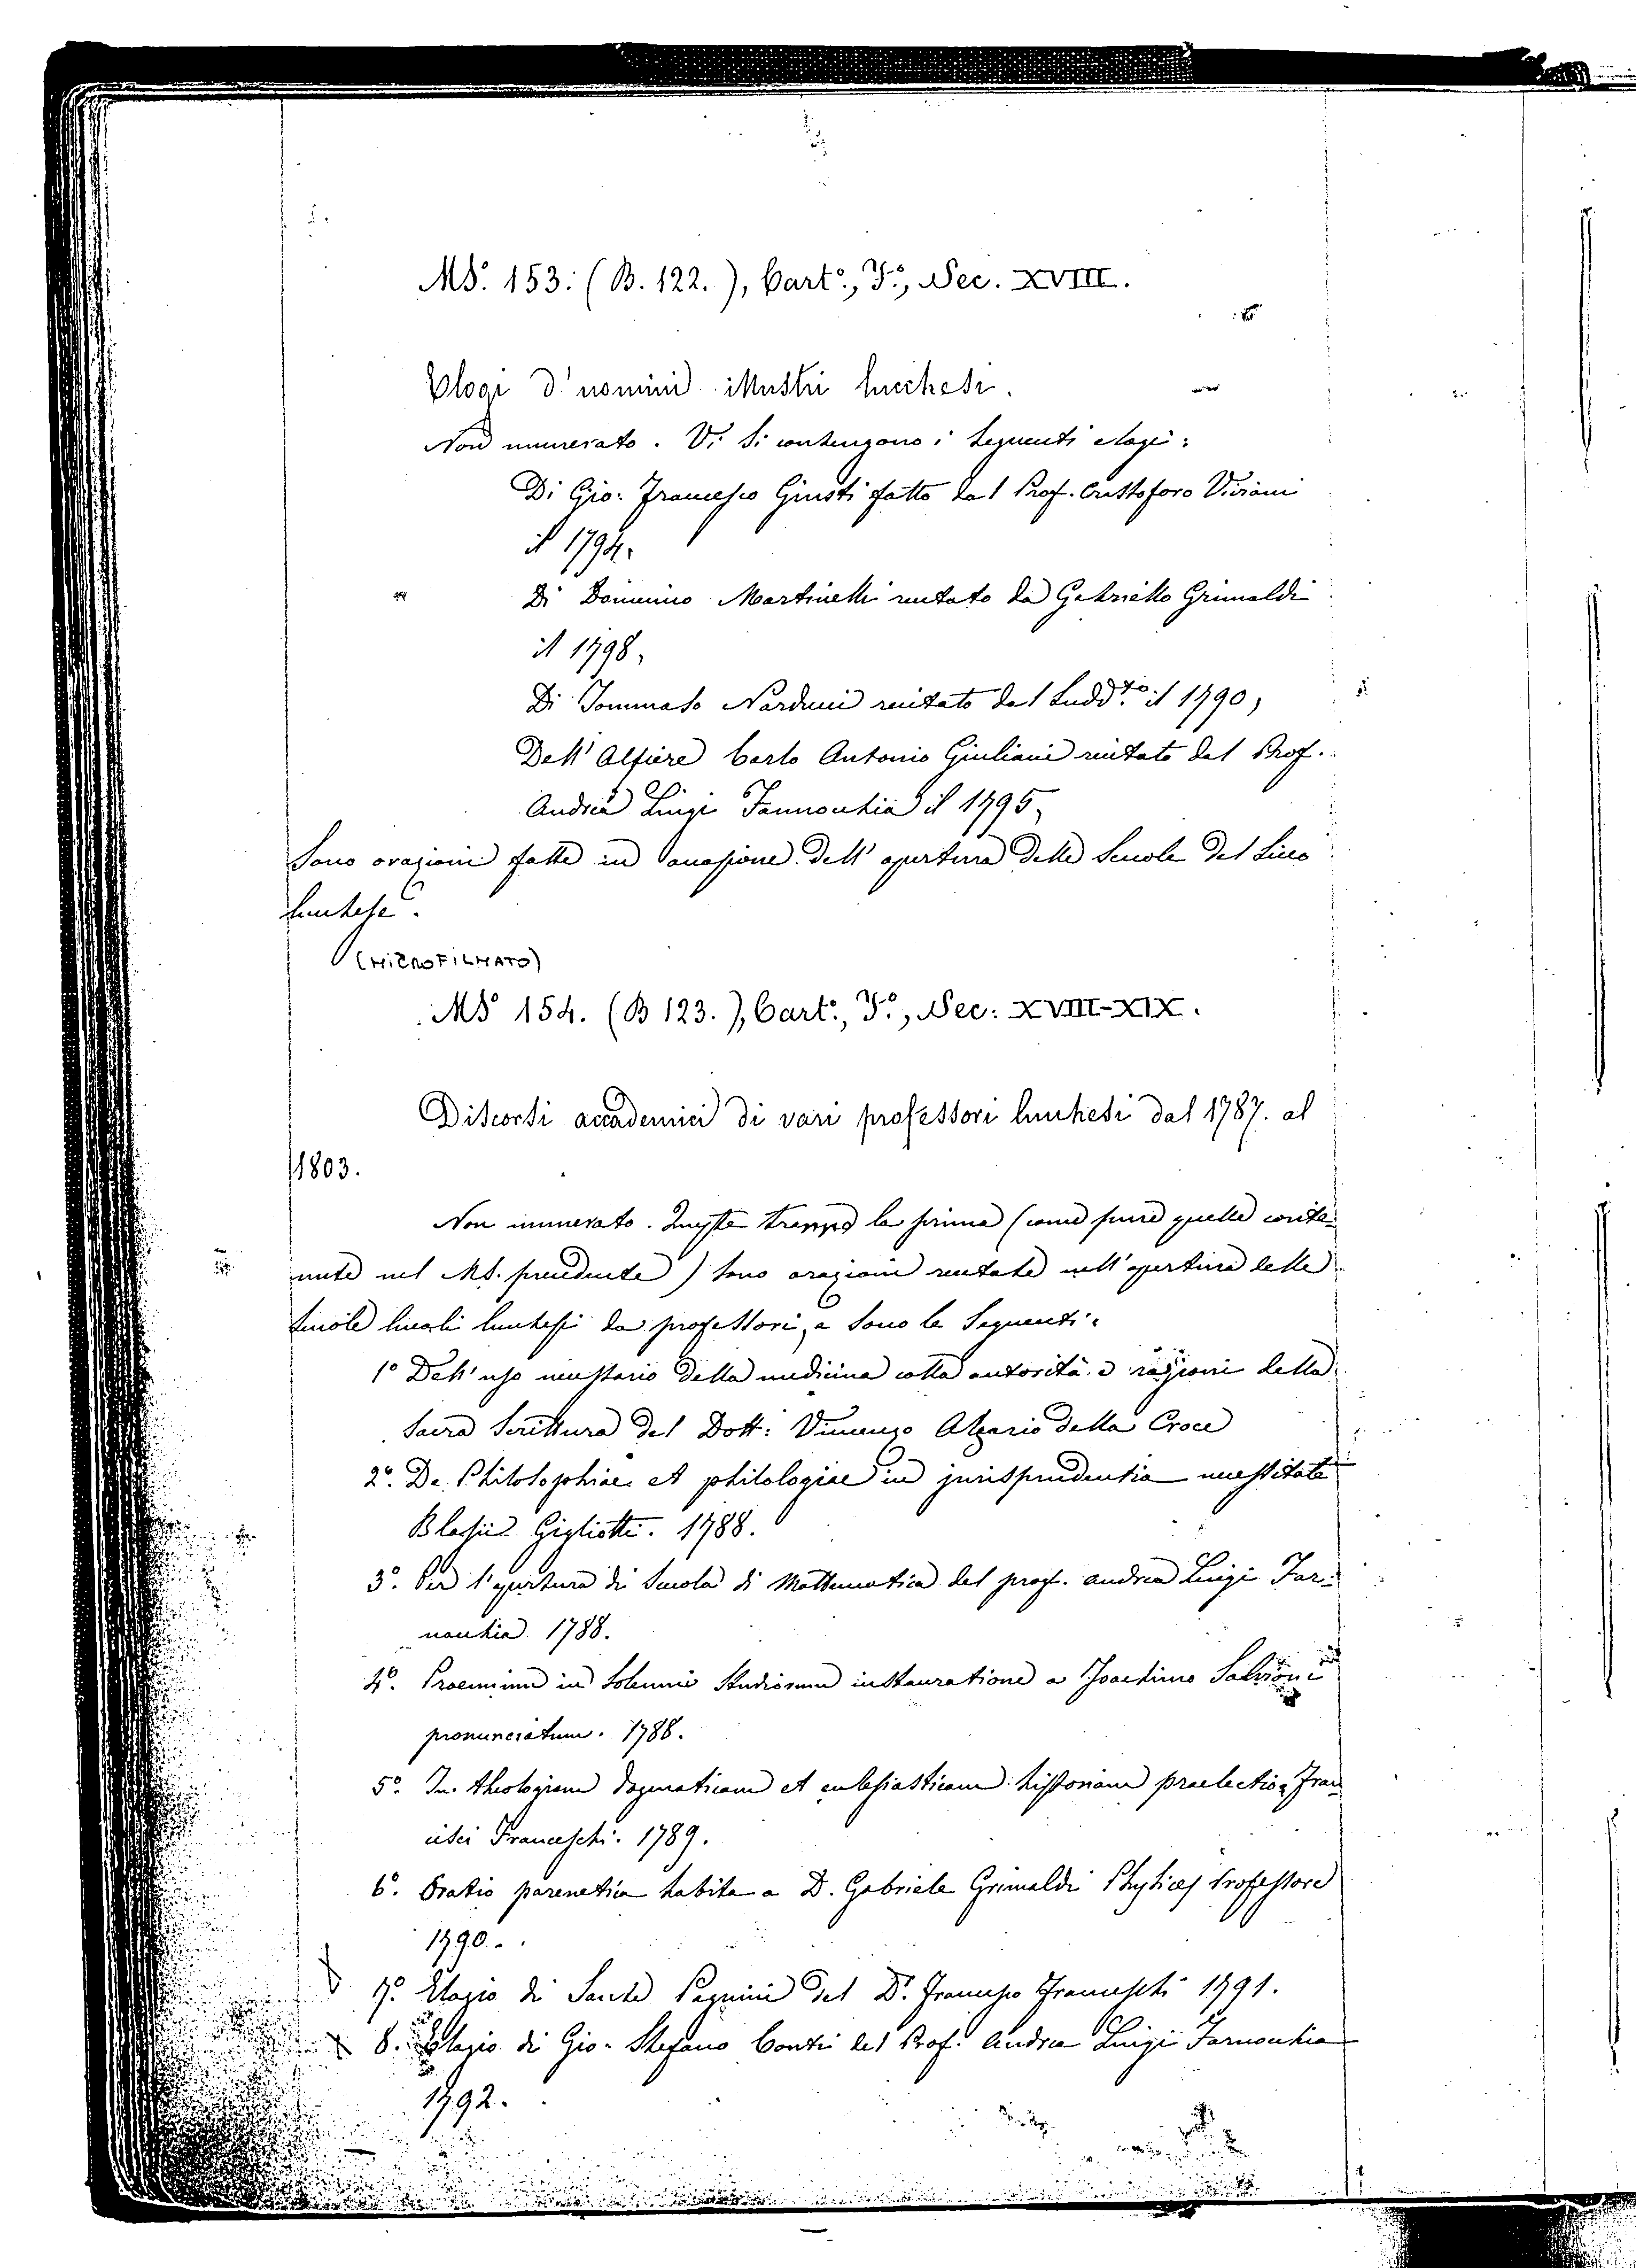 MS. 153. (B. 122.), Cart°., F°., Sec. XVIII.
Elogi d'uomini illustri lucchesi.
Non numerato. Vi si contengono i seguenti elogi:
Di Gio. Francesco Giusti fatto dal Prof. Cristoforo Viviani
il 1794.
Di Domenico Martinelli recitato da Gabriello Grimaldi
il 1798,
Di Tommaso Narducci recitato dal Sudd.to il 1790,
Dell'Alfiere Carlo Antonio Giuliani recitato dal Prof.
Andrea Luigi il 1795,
Sono orazioni fatte in occasione dell'apertura delle Scuole del Liceo
lucchese.
(MICROFILMATO)
MS 154. (B 123.), Cart°., F°., Sec: XVIII-XIX.
Discorsi accademici di vari professori lucchesi dal 1787. al
1803.
Non numerato. la prima (come pure quelle conte-
nute nel MS. precedente) sono orazioni recitate nell'apertura delle
scuole liceali lucchesi da professori, e sono le seguenti:
1° Dell'uso necessario della medicina colla autorità e ragioni della
Sacra Scrittura del Dott: Vincenzo Algario della Croce
2°. De Philosophiae et philologiae in jurisprudentia necessitate
Blasii Gigliotti. 1788.
3°. Per l'apertura di Scuola di Mattematica del prof. Andrea Luigi
1788.
4°. Proemium in solemni Studiorum instauratione a Joachimo Salvioni
pronunciatum. 1788.
5°. In theologiam dogmaticam et eclesiasticam historiam praelectio Fran
cisci Franceschi. 1789.
6°. Oratio parenetica habita a D. Gabriele Grimaldi Physices Professore
1790.
7°. Elogio di Sante Pagnini del D.r Francesco Franceschi 1791.
8. Elogio di Gio. Stefano Conti del Prof. Andrea Luigi
1792.